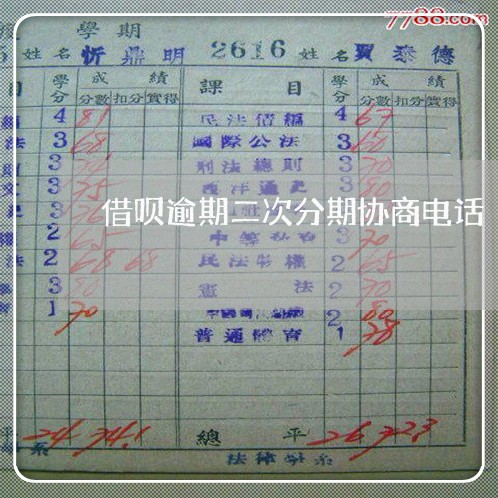 7788.com
學期
姓名 忻鼎明 2616 姓名 賈泰德
目 學分 成績 課目 學分 成績
分數 扣分 實得 分數 扣分 實得
4 81 民法債編 4 67
法 3 68 國際公法 3 60
3 刑法總則 3 70
文 3 75 西洋通史 3 80
3 76 3
借呗逾期二次分期协商电话
2 65 中等私名 3 70
法 2 68 68 民法物權 2 65
3 80 憲法 2 70
1 70 2 80
普通體育 1 78
平 24 74.1 總平 26 72.3
系 法律學系